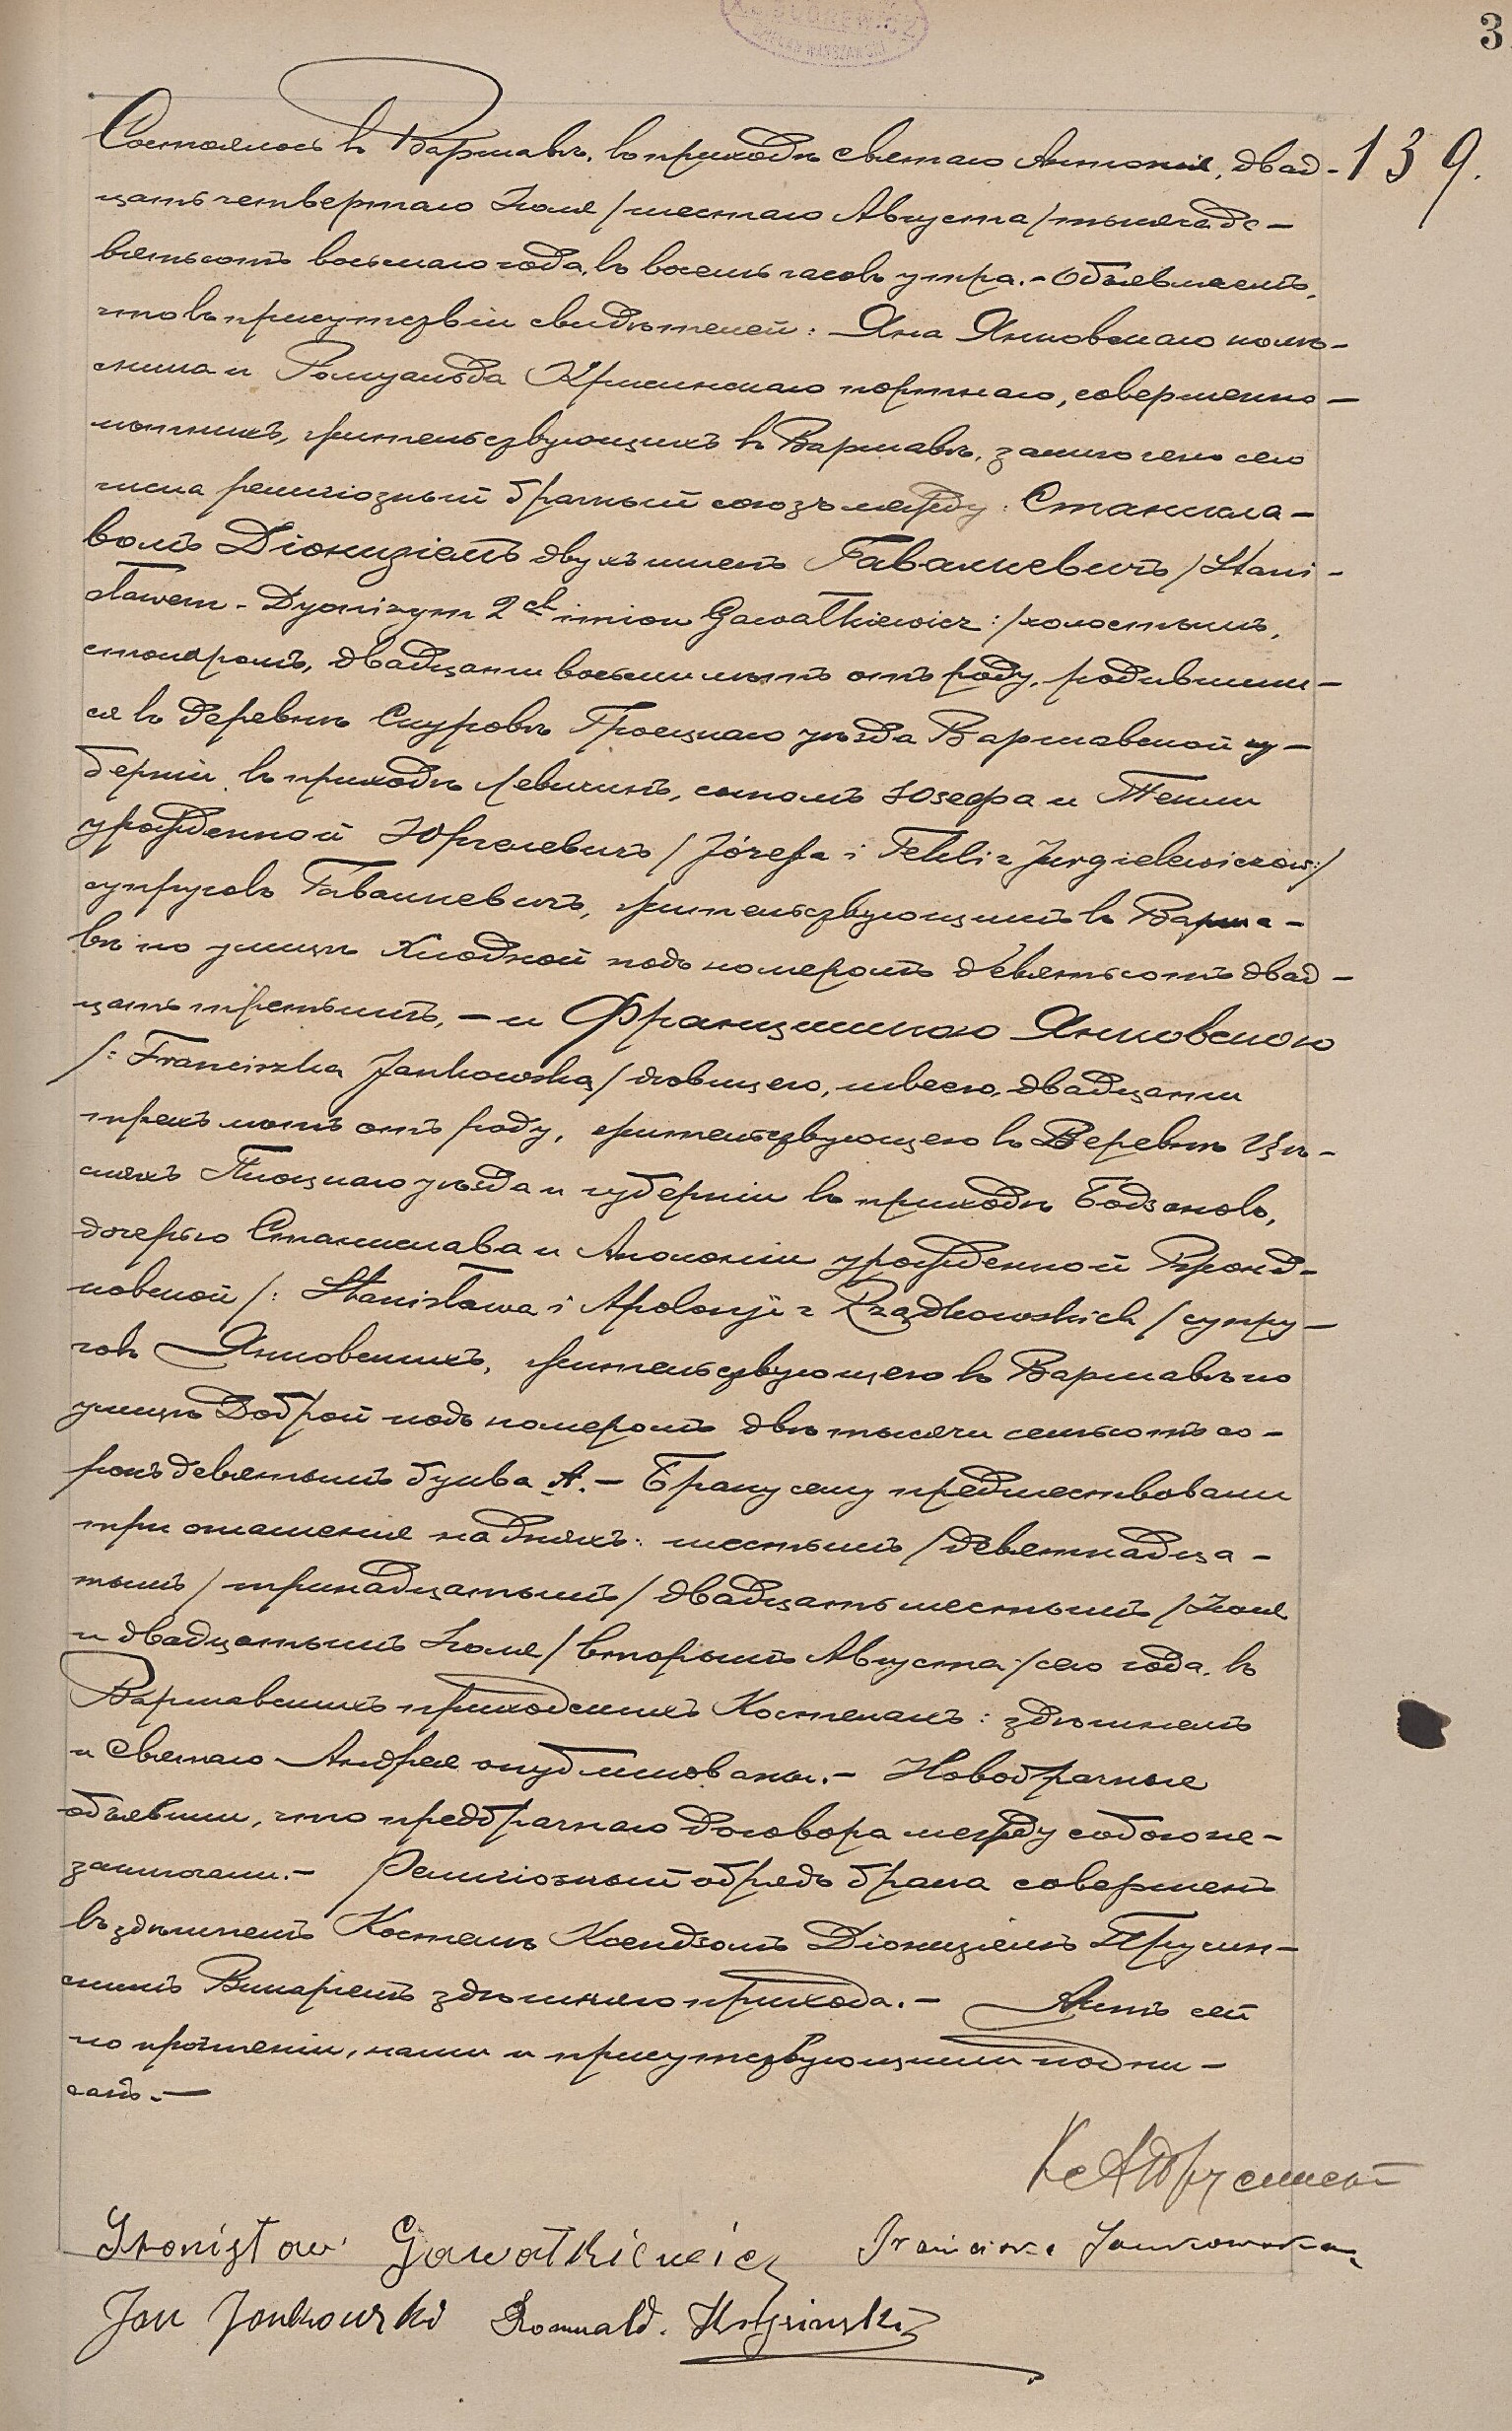 3
139.
Состоялось въ Варшавѣ, въ приходѣ святаго Антонія, двад-
цать четвертаго Іюля /шестаго Августа/ тысяча де-
вятьсотъ восьмаго года, въ восемь часовъ утра. - Объявляемъ,
что въ присутствіи свидѣтелей: Яна Янковскаго коло-
и Ромуальда портнаго, совершенно-
лѣтнихъ, жительствующихъ въ Варшавѣ, заключенъ сего
числа религіозный брачный союзъ между: Станисла-
вомъ Діонизіемъ двухъ именъ Гавалкевичъ /Stani-
sławem - Dyonizym 2ch imion Gawałkiewicz:/ холостымъ,
столяромъ, двадцати восьми лѣтъ отъ роду, родившим-
ся въ деревнѣ Скуровѣ Гроецкаго уѣзда Варшавской гу-
берніи въ приходѣ Левичинъ, сыномъ Юзефа и Текли
урожденной Юргелевичъ /Józefa i Tekli z Jurgielewiczów:/
супруговъ Гавалкевичъ, жительствующимъ въ Варша-
вѣ по улицѣ Хлодной подъ номеромъ девятьсотъ двад-
цать третьимъ, - и Францишкою Янковскою
/: Franciszką Jankowską/ дѣвицею, швеею, двадцати
трехъ лѣтъ отъ роду, жительствующею въ деревнѣ Цѣ-
Плоцкаго уѣзда и губерніи въ приходѣ Бодзановъ,
дочерью Станислава и Аполоніи урожденной Ржонд-
ковской /: Stanisława i Apolonji z Rządkowskich / супру-
говъ Янковскихъ, жительствующею въ Варшавѣ по
улицѣ Доброй подъ номеромъ двѣ тысячи семьсотъ со-
рокъ девятымъ буква А. - Браку сему предшествовали
три оглашенія на дняхъ: шестымъ /девятнадца-
тымъ/ тринадцатымъ /двадцать шестымъ/ Іюля
и двадцатымъ Іюля /вторымъ Августа/ сего года, въ
Варшавскихъ приходскихъ Костелахъ: здѣшнемъ
и Святаго Андрея опубликованы. - Новобрачные
объявили, что предбрачнаго договора между собою не-
заключали. - Религіозный обрядъ брака совершенъ
въ здѣшнемъ Костелѣ Ксендзомъ Діонизіемъ
Викаріемъ здѣшняго прихода. - Актъ сей
по прочтеніи, нами и присутствующими подпи-
санъ. -
Stanisław Gawałkiewicz Franciszka Jankowska
Jan Jankowski Romuald